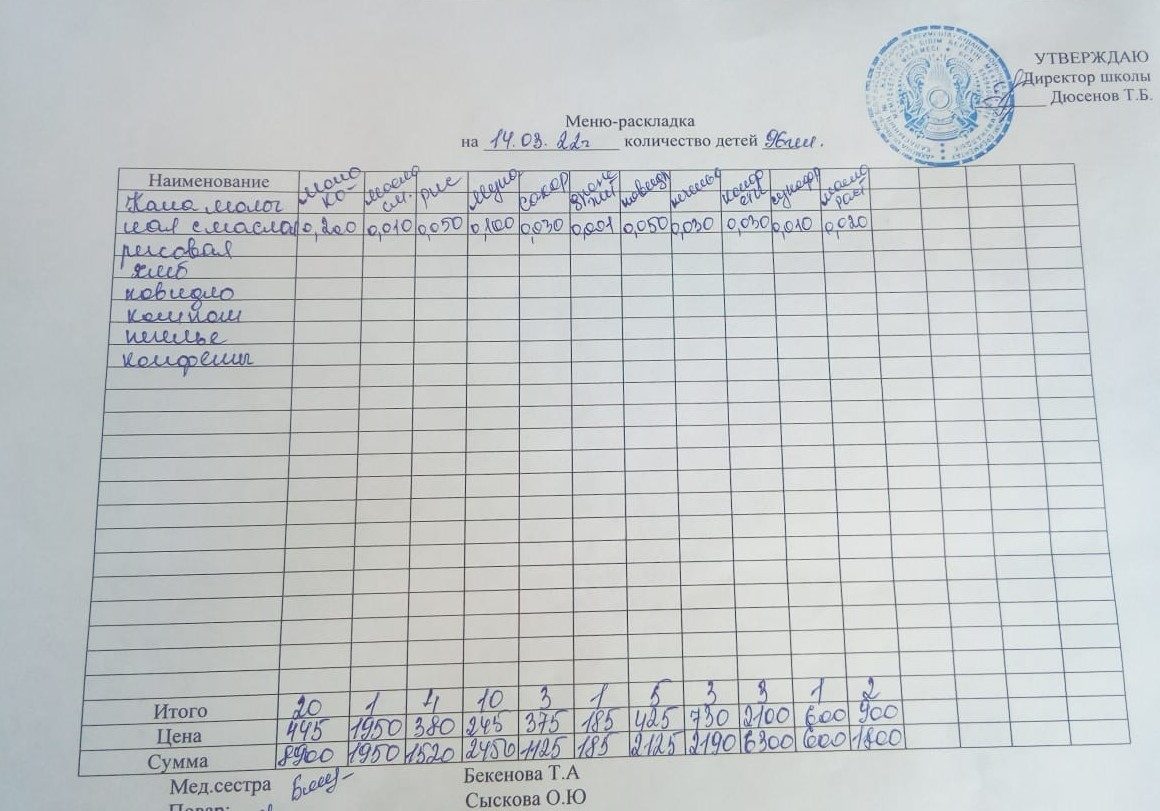 УТВЕРЖДАЮ
Директор школы
Дюсенов Т.Б.
Меню-раскладка
на 14.03.22г количество детей 96чел.
Наименование моло ко- масло см. рис сахар повидл печенье масло раст
Каша молоч
ная с маслом 0,200 0,010 0,050 0,100 0,030 0,001 0,050 0,030 0,030 0,010 0,020
рисовая
хлеб
повидло
компот
печенье
конфеты
Итого 20 1 4 10 3 1 5 3 3 1 2
Цена 445 1950 380 245 375 185 425 730 2100 600 900
Сумма 8900 1950 1520 2450 1125 185 2125 2190 6300 600 1800
Мед.сестра Бекенова Т.А
Повар: Сыскова О.Ю